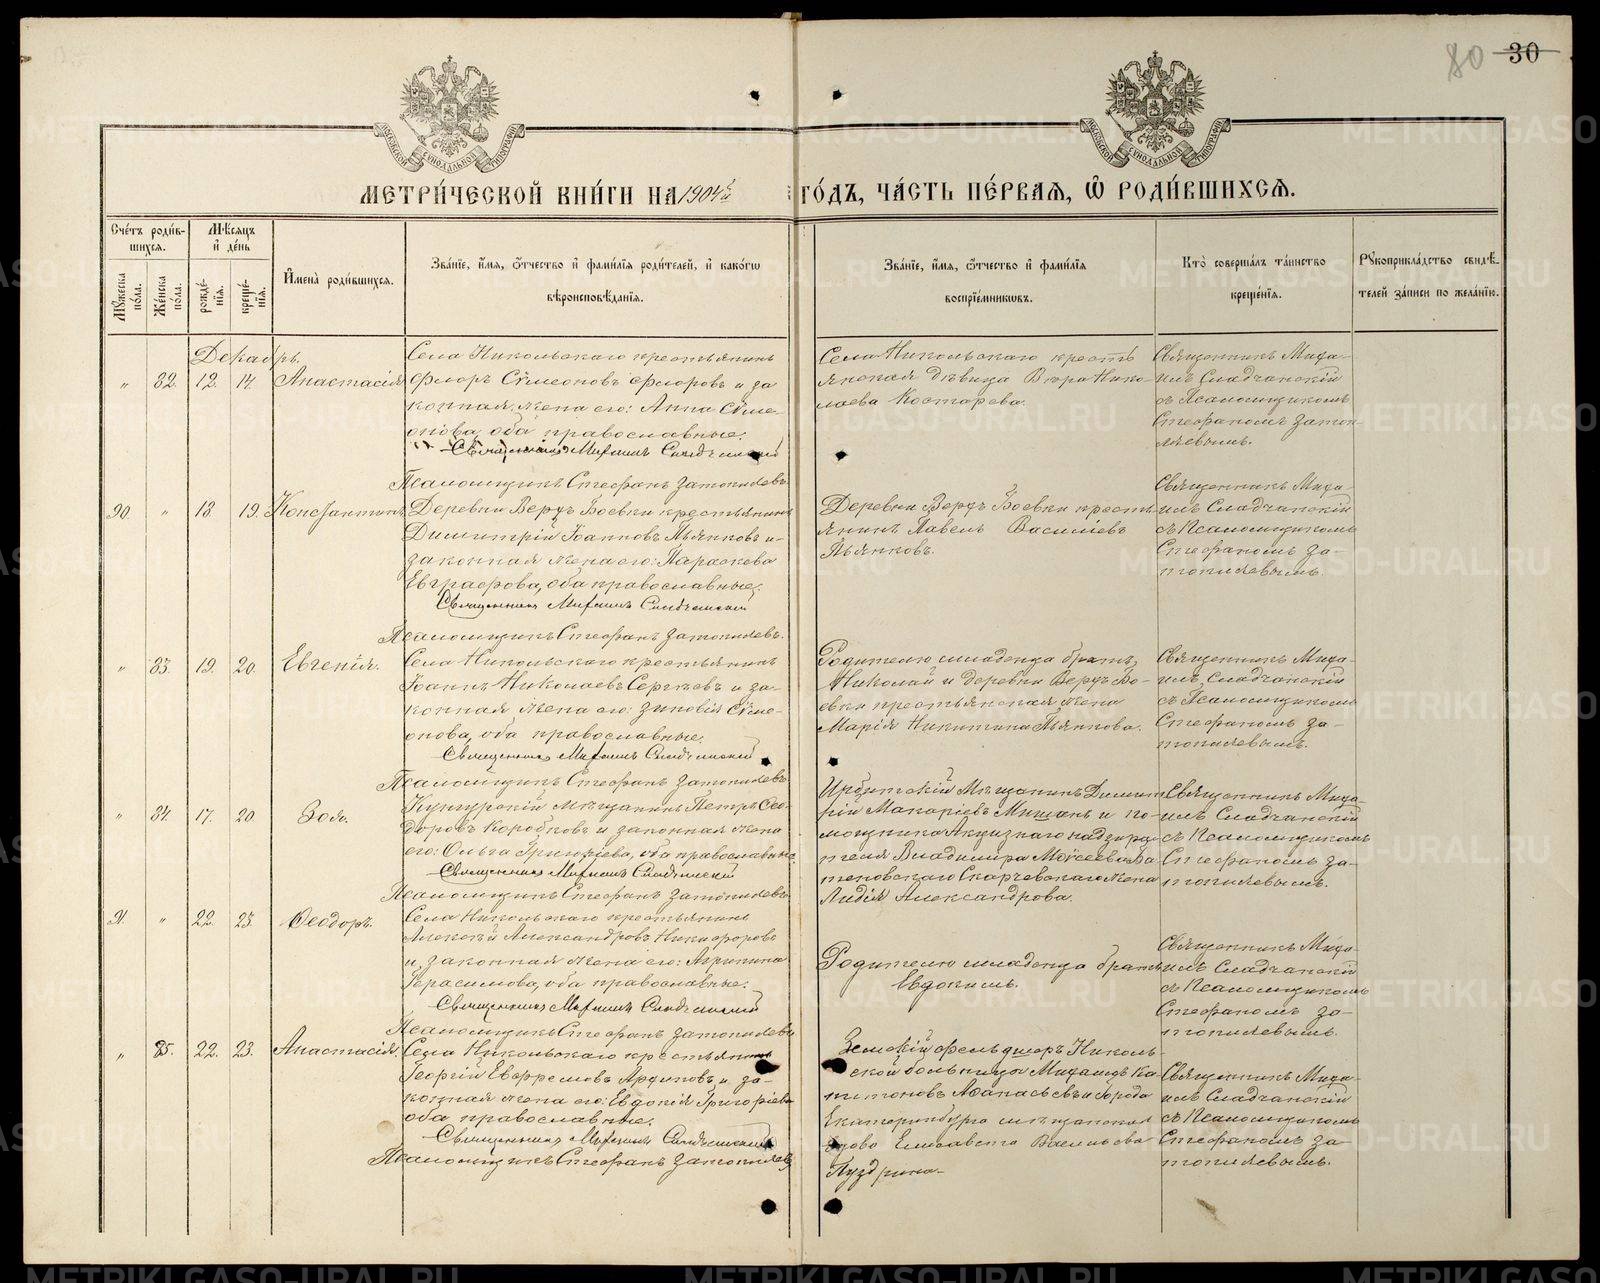 80 30
МОСКОВСКОЙ СУНОДАЛЬНОЙ ТИПОГРАФІИ
МОСКОВСКОЙ СУНОДАЛЬНОЙ ТИПОГРАФІИ
МЕТРИ́ЧЕСКОЙ КНИ́ГИ НА 1904й ГО́ДЪ, ЧА́СТЬ ПЕ́РВАЯ, Ѽ РОДИ́ВШИХСЯ.
Сче́тъ роди́в-
шихся.
Мꙋ́жеска
по́ла.
Же́нска
по́ла.
Мѣ́сяцъ
и҆ де́нь
рожде́-
нїя.
креще́-
нїя.
И҆мена̀ роди́вшихся.
Зва́нїе, и҆́мя, ѻ҆́тчество и҆ фами́лїя роди́телей, и҆ како́гѡ
вѣроисповѣ́данїя.
Зва́нїе, и҆́мя, ѻ҆́тчество и҆ фами́лїя
воспрїе́мниковъ.
Кто̀ соверша́лъ та́инство
креще́нїя.
Рꙋкоприкла́дство свидѣ́-
телей за́писи по жела́нїю.
Декабрь.
„ 82. 12. 14. Анастасія
Села Никольскаго крестьянинъ
Флоръ Сѵмеоновъ Флоровъ и за
конная жена его: Анна Сѵме-
онова, оба православные.
Священникъ Михаилъ Сладчанскій
Псаломщикъ Стефанъ Затопляевъ.
Села Никольскаго кресть
янская дѣвица Вѣра Нико
лаева Костарева.
Священникъ Миха-
илъ Сладчанскій
съ Псаломщикомъ
Стефаномъ Затоп-
ляевымъ.
90. „ 18. 19. Константинъ.
Деревни Верхъ Боевки крестьянинъ
Димитрій Іоанновъ Пьянковъ и
законная жена его: Параскева
Евграфова, оба православные.
Священникъ Михаилъ Сладчанскій
Псаломщикъ Стефанъ Затопляевъ.
Деревни Верхъ Боевки кресть
янинъ Павелъ Василіевъ
Пьянковъ.
Священникъ Миха-
илъ Сладчанскій
съ Псаломщикомъ
Стефаномъ За-
топляевымъ.
„ 83. 19. 20. Евгенія.
Села Никольскаго крестьянинъ
Іоаннъ Николаевъ Сергѣевъ и за-
конная жена его: Зиновія Сѵме-
онова, оба православные.
Священникъ Михаилъ Сладчанскій
Псаломщикъ Стефанъ Затопляевъ.
Родителю младенца братъ,
Николай и деревни Верхъ Бо-
евки крестьянская жена
Марія Никитина Пьянкова.
Священникъ Миха-
илъ Сладчанскій
съ Псаломщикомъ
Стефаномъ За-
топляевымъ.
„ 84. 17. 20. Зоя.
Кунгурскій мѣщанинъ Петръ Ѳео-
доровъ Коробковъ и законная жена
его: Ольга Григоріева, оба православные.
Священникъ Михаилъ Сладчанскій
Псаломщикъ Стефанъ Затопляевъ.
Ирбитскій Мѣщанинъ Димит
рій Макаріевъ Мишанъ и по-
мощника Акцизнаго надзира-
теля Владиміра Моѵсеева
Скарчевскаго жена
Лидія Александрова.
Священникъ Миха-
илъ Сладчанскій
съ Псаломщикомъ
Стефаномъ За-
топляевымъ.
91. „ 22. 23. Ѳеодоръ.
Села Никольскаго крестьянинъ
Алексѣй Александровъ Никифоровъ
и законная жена его: Агрипина
Герасимова, оба православные.
Священникъ Михаилъ Сладчанскій
Псаломщикъ Стефанъ Затопляевъ
Родителю младенца братъ
Евдокимъ.
Священникъ Миха-
илъ Сладчанскій
съ Псаломщикомъ
Стефаномъ За-
топляевымъ.
„ 85. 22. 23. Анастасія.
Села Никольскаго крестьянинъ
Георгій Евфремовъ Ардиновъ и за-
конная жена его: Евдокія Григоріева
оба православные.
Священникъ Михаилъ Сладчанскій
Псаломщикъ Стефанъ Затопляевъ
Земскій фельдшеръ Николь-
ской больницы Михаилъ Ка-
питоновъ Аѳанасьевъ и города
Екатеринбурга мѣщанская
вдова Елисавета Васильева
Пуздрина.
Священникъ Миха-
илъ Сладчанскій
съ Псаломщикомъ
Стефаномъ За-
топляевымъ.
METRIKI.GASO-URAL.RU